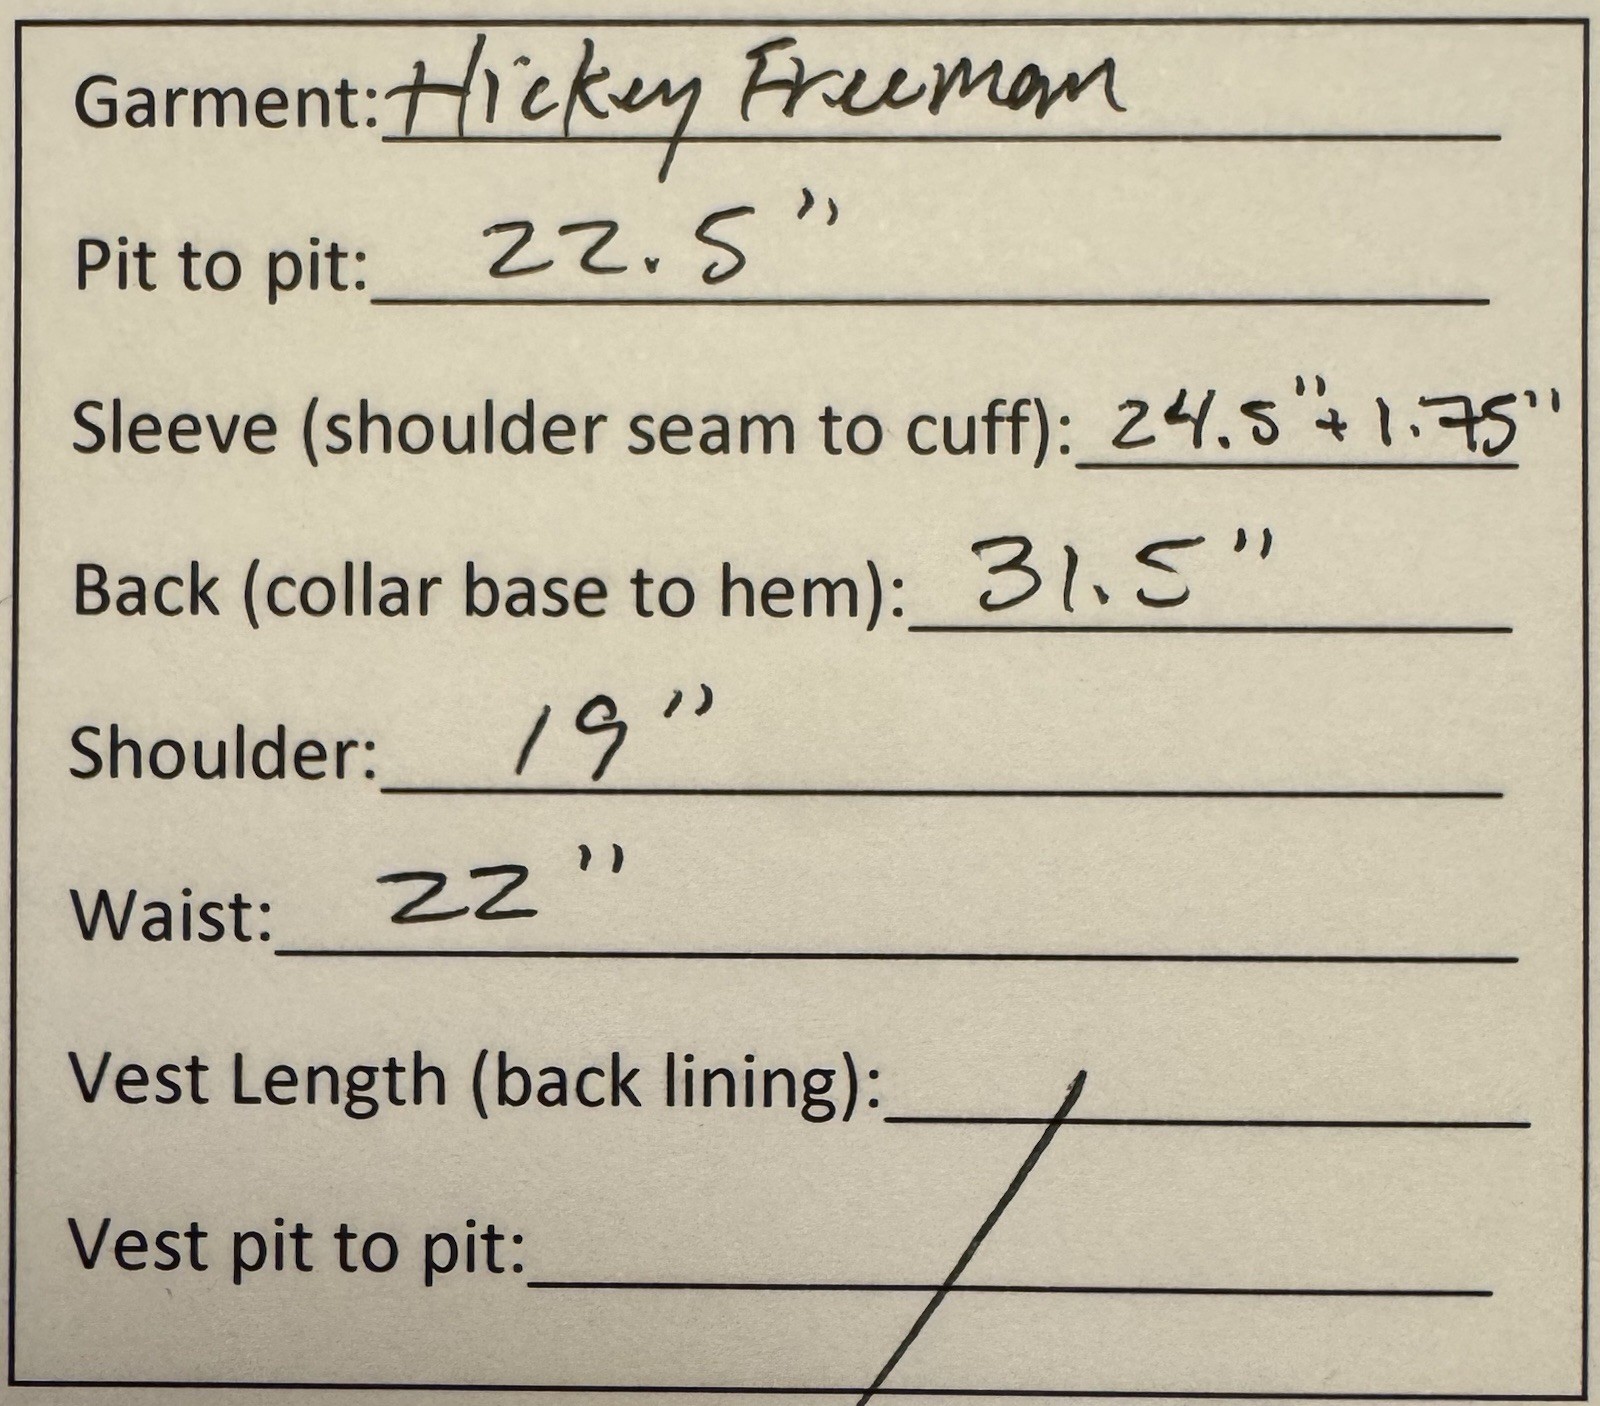 Garment: Hickey Freeman
Pit to pit: 22.5"
Sleeve (shoulder seam to cuff): 24.5" + 1.75"
Back (collar base to hem): 31.5"
Shoulder: 19"
Waist: 22"
Vest Length (back lining):
Vest pit to pit: